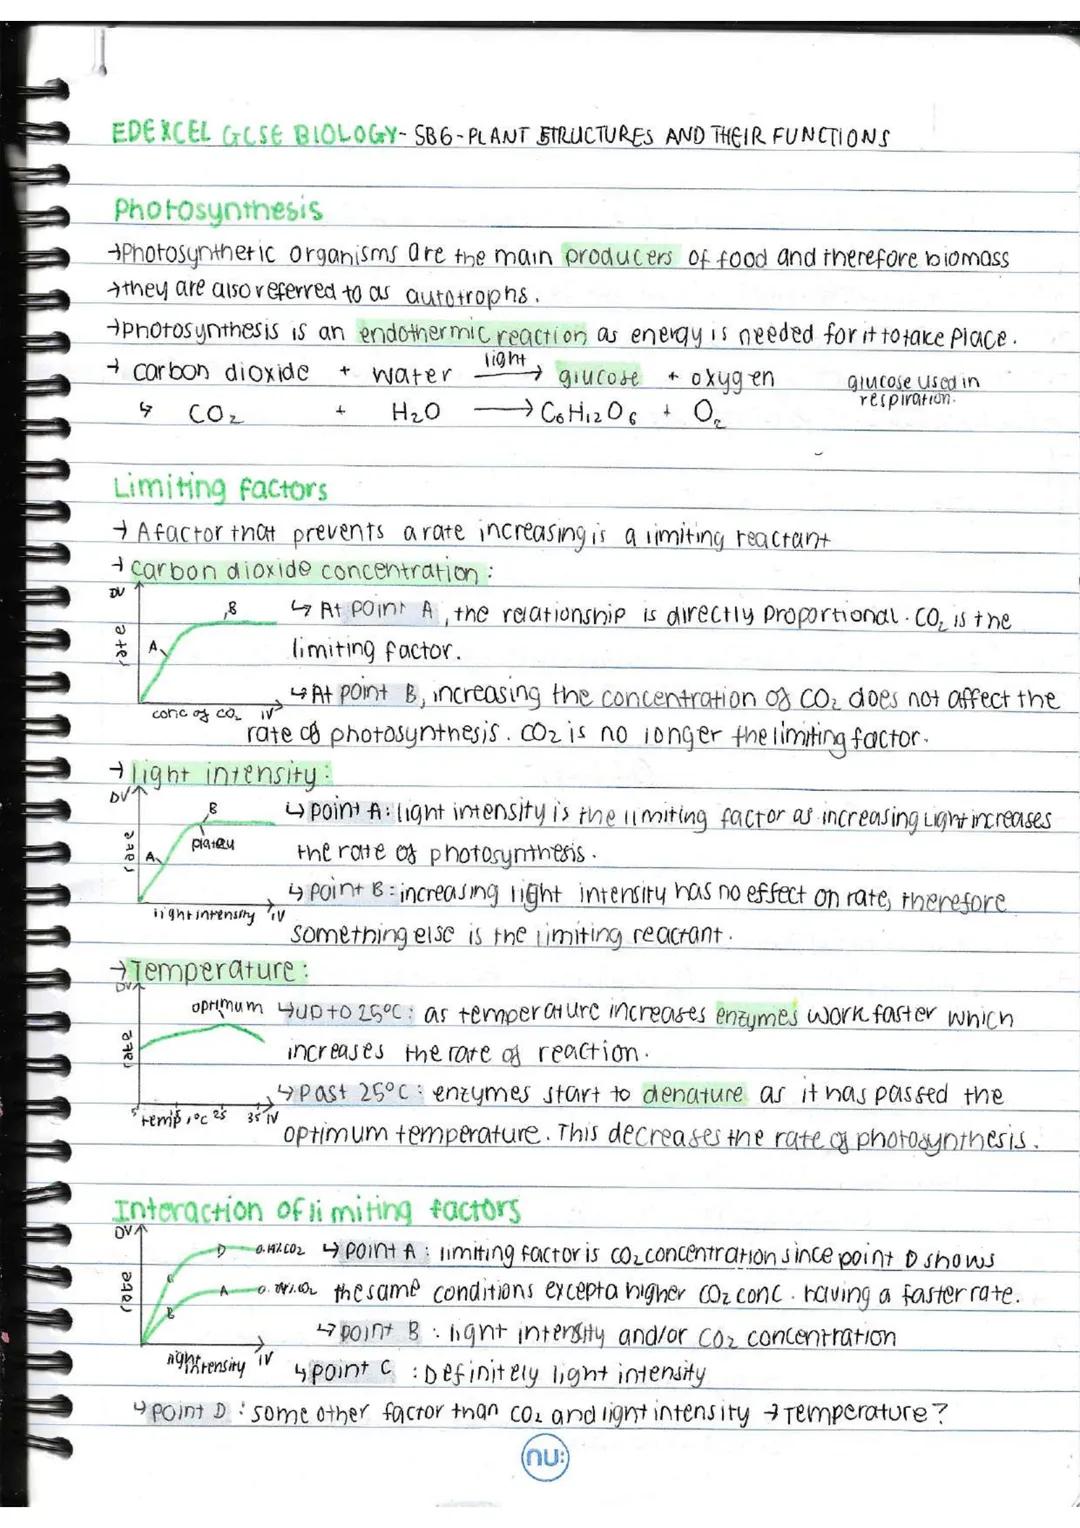 EDEXCEL GCSE BIOLOGY- SB6-PLANT STRUCTURES AND THEIR FUNCTIONS
Photosynthesis
→Photosynthetic organisms are the main producers of food and therefore biomass
→they are also referred to as autotrophs.
→photosynthesis is an endothermic reaction as energy is needed for it to take place.
→ carbon dioxide + water light → glucose + oxygen glucose used in
↳ CO₂ + H₂O → C6H12O6 + O₂ respiration.
Limiting factors
→ A factor that prevents a rate increasing is a limiting reactant
→ carbon dioxide concentration:
DV
B ↳ At point A, the relationship is directly proportional. CO₂ is the
rate A limiting factor.
↳ At point B, increasing the concentration of CO₂ does not affect the
conc of CO₂ IV
rate of photosynthesis. CO₂ is no longer the limiting factor.
→ light intensity:
DV
B ↳ point A: light intensity is the limiting factor as increasing light increases
rate A plateau the rate of photosynthesis.
↳ point B: increasing light intensity has no effect on rate, therefore
light intensity IV something else is the limiting reactant.
→Temperature:
DV
optimum ↳up to 25°C: as temperature increases enzymes work faster which
rate increases the rate of reaction.
↳past 25°C: enzymes start to denature as it has passed the
5 temp, °C 25 35 IV
optimum temperature. This decreases the rate of photosynthesis.
Interaction of limiting factors
DV
D 0.14%CO2 ↳ point A: limiting factor is CO₂ concentration since point D shows
rate C A CO2 the same conditions except a higher CO₂ conc. having a faster rate.
B ↳ point B: light intensity and/or CO₂ concentration
light intensity IV ↳ point C : Definitely light intensity
↳ point D: some other factor than CO₂ and light intensity → Temperature?
nu: